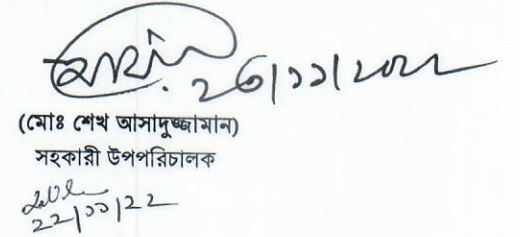 ২৩/১১/২০২২
(মোঃ শেখ আসাদুজ্জামান)
সহকারী উপপরিচালক
২২/১১/২২